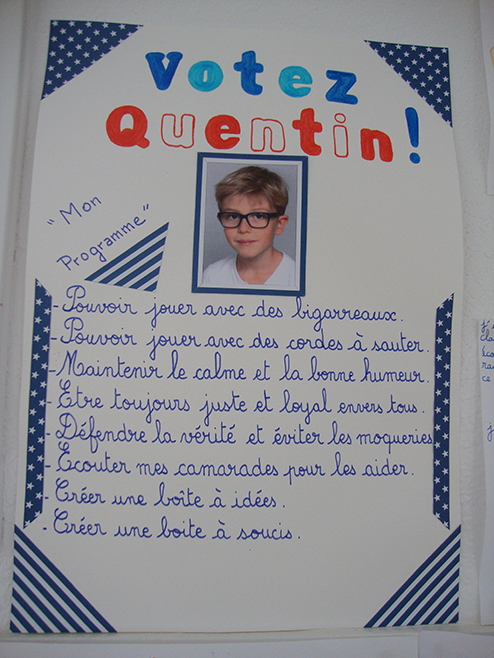 Votez
Quentin!
"Mon
Programme"
- Pouvoir jouer avec des bigarreaux.
- Pouvoir jouer avec des cordes à sauter.
- Maintenir le calme et la bonne humeur.
- Etre toujours juste et loyal envers tous.
- Défendre la vérité et éviter les moqueries
- Ecouter mes camarades pour les aider.
- Créer une boîte à idées.
- Créer une boite à soucis.